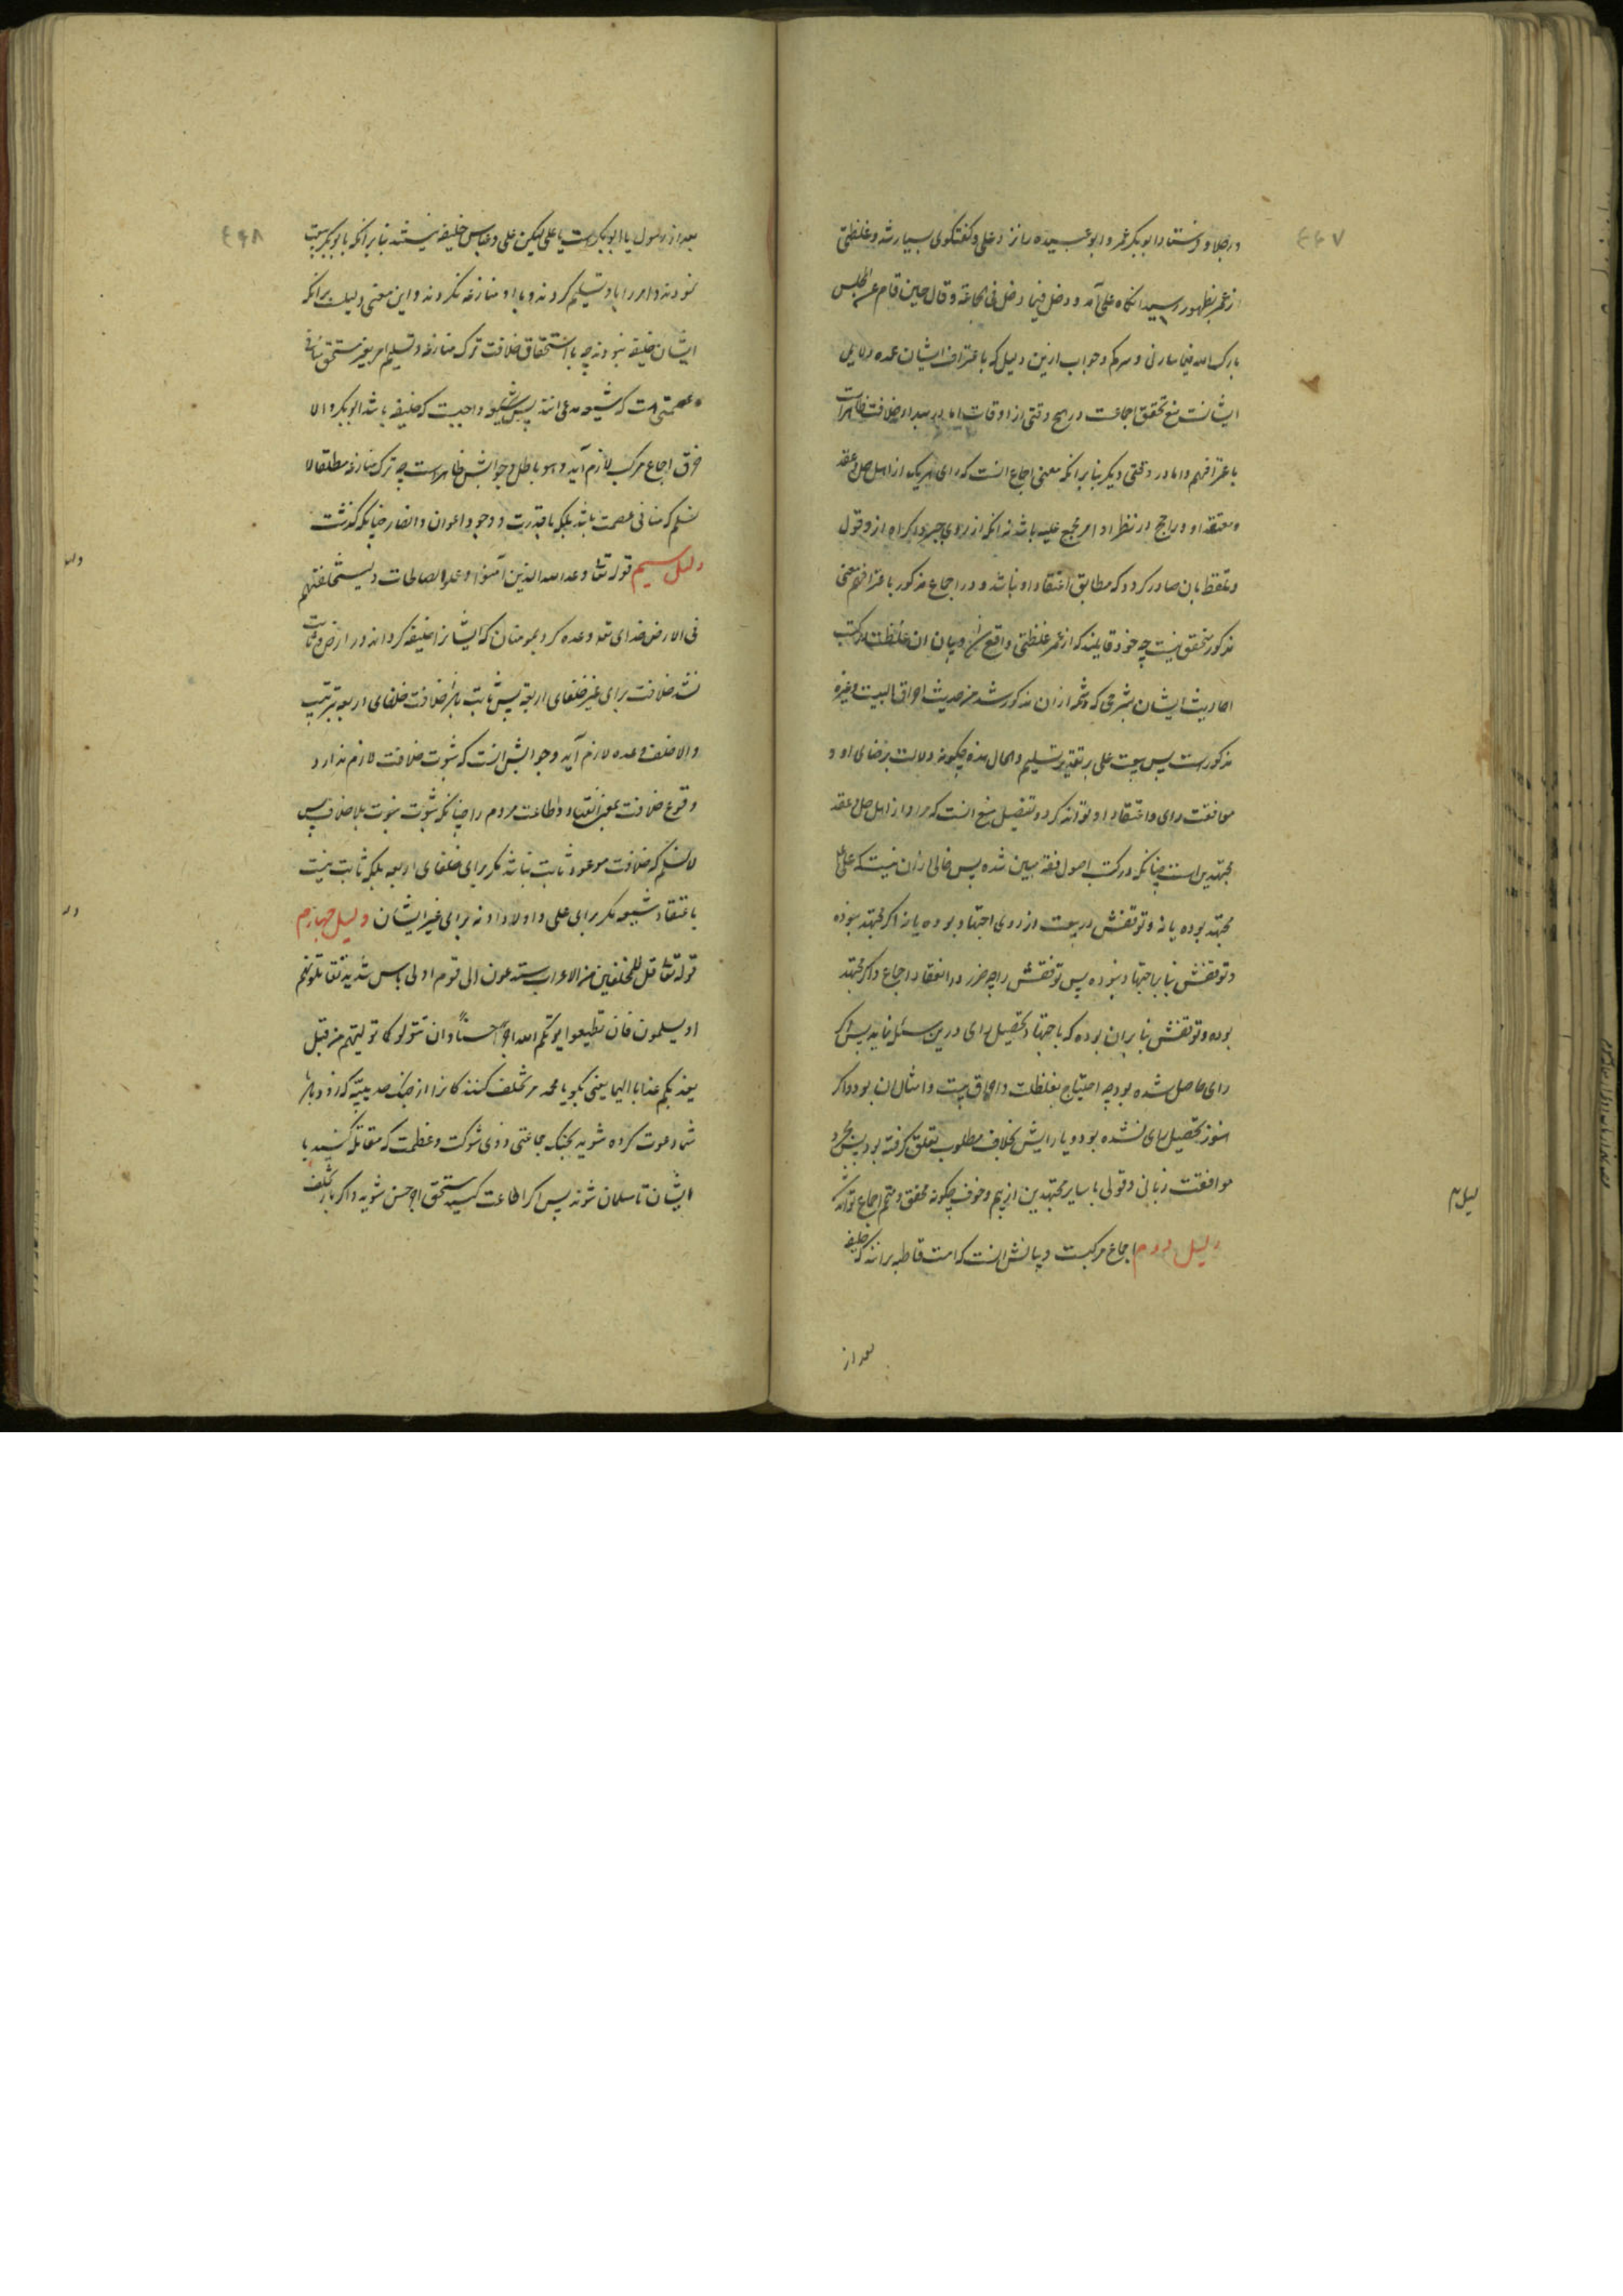 ۴۴۷
در جلاء و فرستاد ابوبکر عمر و ابو عبیده را نزد علی و گفتگوی بسیار شد و غلظتی
از عمر بظهور رسید انگاه علی آمد و دخل فیما دخل فی الجماعة و قال حین قام عن المجلس
بارک الله فیما سارنی و سرکم و جواب ازین دلیل که باعتراف ایشان عمده دلایل
ایشانست منع تحقق اجماعت در هیچ وقتی از اوقات اما در مبداء خلافت ظاهرست
باعترافهم و اما در وقتی دیگر بنا بر انکه معنی اجماع انست که رای هر یک از اهل حل و عقد
و معتقد او و راجح در نظر او امر مجمع علیه باشد نه انکه از روی جبر و اکراه ازو قول
و تلفظ بان صادر کردد که مطابق اعتقاد او نباشد و در اجماع مذکور باعترافهم معنی
مذکور متحقق نیست چه خود قایلند که از عمر غلظتی واقع شد و بیان ان غلظت در کتب
احادیث ایشان بشرحی که شمه از ان مذکور شد من حدیث احراق البیت و غیره
مذکورست پس بیعت علی بر تقدیر تسلیم و الحال هذه چکونه دلالت برضای او و
موافقت رای و اعتقاد او تواند کرد و تفصیل منع انست که مراد از اهل حل و عقد
مجتهدین است چنانکه در کتب اصول فقه مبین شده پس خالی از ان نیست که علی ع
مجتهد بوده یا نه و توقفش در بیعت از روی اجتهاد بوده یا نه اکر مجتهد نبوده
و توقفش بنا بر اجتهاد نبوده پس توقفش را چه ضرر در انعقاد اجماع و اکر مجتهد
بوده و توقفش بنا بر ان بوده که باجتهاد تحصیل رای درین مسئله نماید پس اکر
رای حاصل شده بود چه احتیاج بغلظت و احراق بیت و امثال ان بود و اکر
هنوز تحصیل رای نشده بود و یا رایش بخلاف مطلوب تعلق کرفته بود پس مجرد
موافقت زبانی و قولی با سایر مجتهدین از بیم و خوف چکونه محقق و متمم اجماع تواند شد
دلیل دوم اجماع مرکبست و بیانش انست که امت قاطبه برانند که خلیفه
بعد از
۴۴۸
بعد از رسول یا ابوبکرست یا علی لیکن علی و عباس خلیفه نیستند بنا بر انکه بابوبکر بیعت
نمودند و امر را باو تسلیم کردند و با او منازعه نکردند و این معنی دلیلست بر انکه
ایشان خلیفه نبودند چه با استحقاق خلافت ترک منازعه و تسلیم امر بغیر مستحق منافی
عصمتی است که شیعه مدعی انند پس واجبست که خلیفه باشد ابوبکر و الا
خرق اجماع مرکب لازم آید و هو باطل و جوابش ظاهرست چه ترک منازعه مطلقا لا
نسلم که منافی عصمت باشد بلکه با قدرت و وجود اعوان و انصار چنانکه گذشت
دلیل سیم قوله تعا وعد الله الذین آمنوا و عملوا الصالحات لیستخلفنهم
فی الارض خدای تعا وعده کرد بمومنان که ایشانرا خلیفه کرداند در ارض و ثابت
نشد خلافت برای غیر خلفای اربعه پس ثابت باشد خلافت خلفای اربعه بترتیب
و الا خلف وعده لازم آید و جوابش انست که ثبوت خلافت لازم ندارد
وقوع خلافت بمعنی انقیاد و اطاعت مردم را چنانکه ثبوت نبوت بلا خلاف پس
لا نسلم که خلافت موعود ثابت نباشد مکر برای خلفای اربعه بلکه ثابت نیست
باعتقاد شیعه مکر برای علی و اولاد او نه برای غیر ایشان دلیل چهارم
قوله تعا قل للمخلفین من الاعراب ستدعون الی قوم اولی باس شدید تقاتلونهم
او یسلمون فان تطیعوا یوتکم الله اجرا حسنا و ان تتولوا کما تولیتم من قبل
یعذبکم عذابا الیما یعنی بکو یا محمد مر تخلف کنندکانرا از جنک حدیبیه که زود باشد
شما دعوت کرده شوید بجنک جماعتی ذوی شوکت و عظمت که مقاتله کنید با
ایشان تا مسلمان شوند پس اکر اطاعت کنید مستحق اجر حسن شوید و اکر باز تخلف